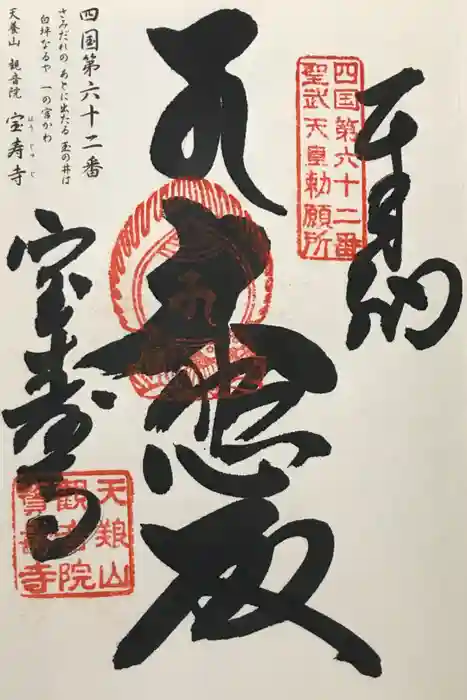 奉納
四国第六十二番
聖武天皇勅願所
大悲殿
四国第六十二番
さみだれの あとに出たる 玉の井は
白坪なるや 一の宮かわ
天養山 観音院 宝寿寺
ほうじゅじ
宝寿寺
天養山
觀音院
寶壽寺